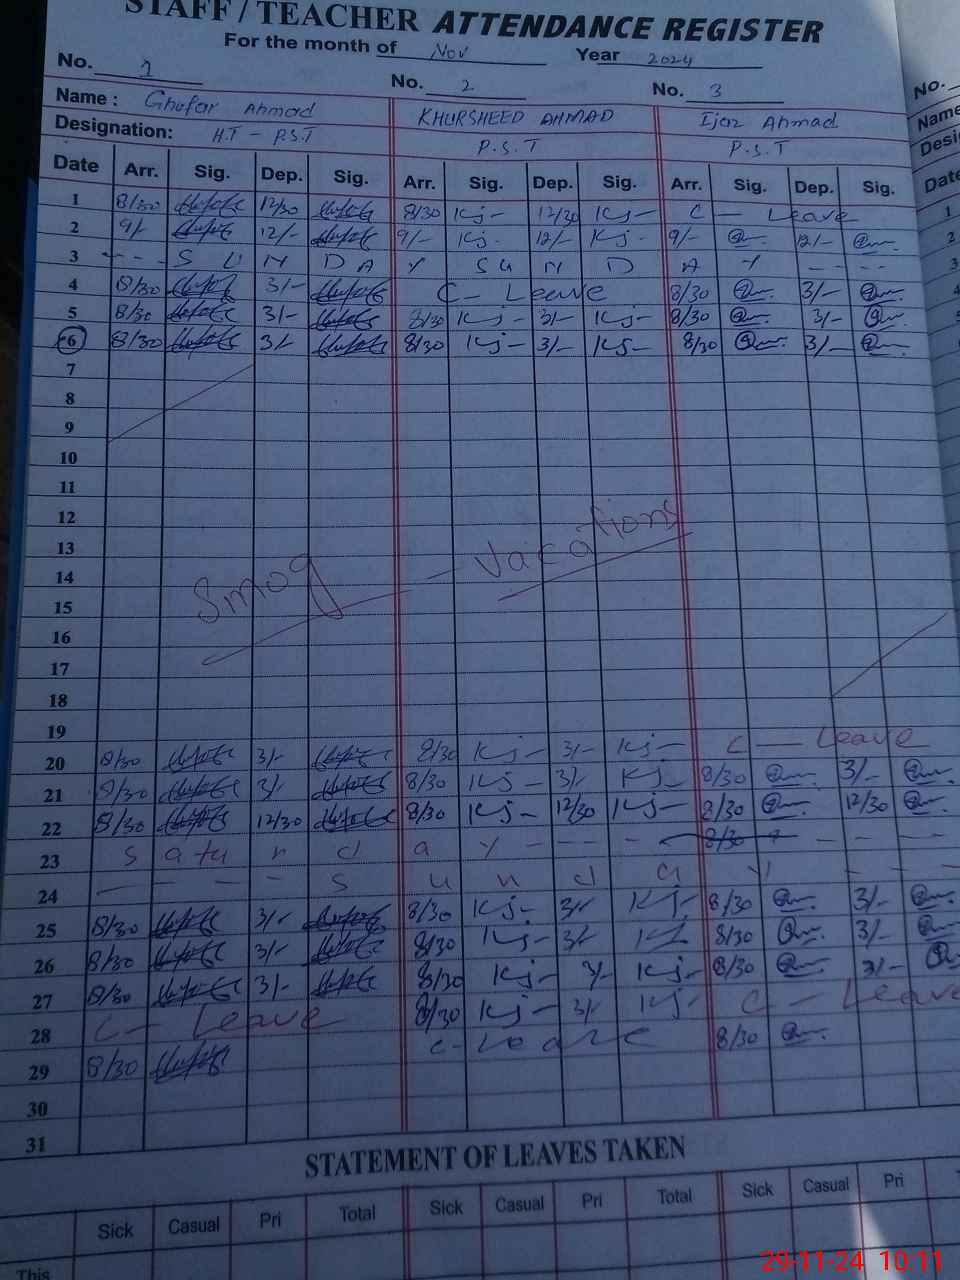 STAFF / TEACHER ATTENDANCE REGISTER
For the month of Nov Year 2024
No. 1 No. 2 No. 3 No.
Name : Ghofar Ahmad KHURSHEED AHMAD Ijaz Ahmad Name
Designation: H.T - P.S.T P.S.T P.S.T Desi
Date Arr. Sig. Dep. Sig. Arr. Sig. Dep. Sig. Arr. Sig. Dep. Sig. Date
1 8/30 12/30 8/30 Kj- 12/30 Kj- C - Leave 1
2 9/- 12/- 9/- Kj- 12/- Kj- 9/- 12/- 2
3 - - - S U N D A Y S U N D A Y - - - - 3
4 8/30 3/- C - Leave 8/30 3/- 4
5 8/30 3/- 8/30 Kj- 3/- Kj- 8/30 3/- 5
6 8/30 3/- 8/30 Kj- 3/- Kj- 8/30 3/-
7
8
9
10
11
12
13
Smog - Vacations
14
15
16
17
18
19
20 8/30 3/- 8/30 Kj- 3/- Kj- C - Leave
21 8/30 3/- 8/30 Kj- 3/- Kj- 8/30 3/-
22 8/30 12/30 8/30 Kj- 12/30 Kj- 8/30 12/30
23 S a tu r d a y - - - - 8/30 - - -
24 - - - - S u n d a y - - -
25 8/30 3/- 8/30 Kj- 3/- Kj- 8/30 3/-
26 8/30 3/- 8/30 Kj- 3/- Kj- 8/30 3/-
27 8/30 3/- 8/30 Kj- 3/- Kj- 8/30 3/-
28 C - Leave 8/30 Kj- 3/- Kj- C - Leave
29 8/30 C - Leave 8/30
30
31
STATEMENT OF LEAVES TAKEN
Sick Casual Pri Total Sick Casual Pri Total Sick Casual Pri
This
29-11-24 10:11